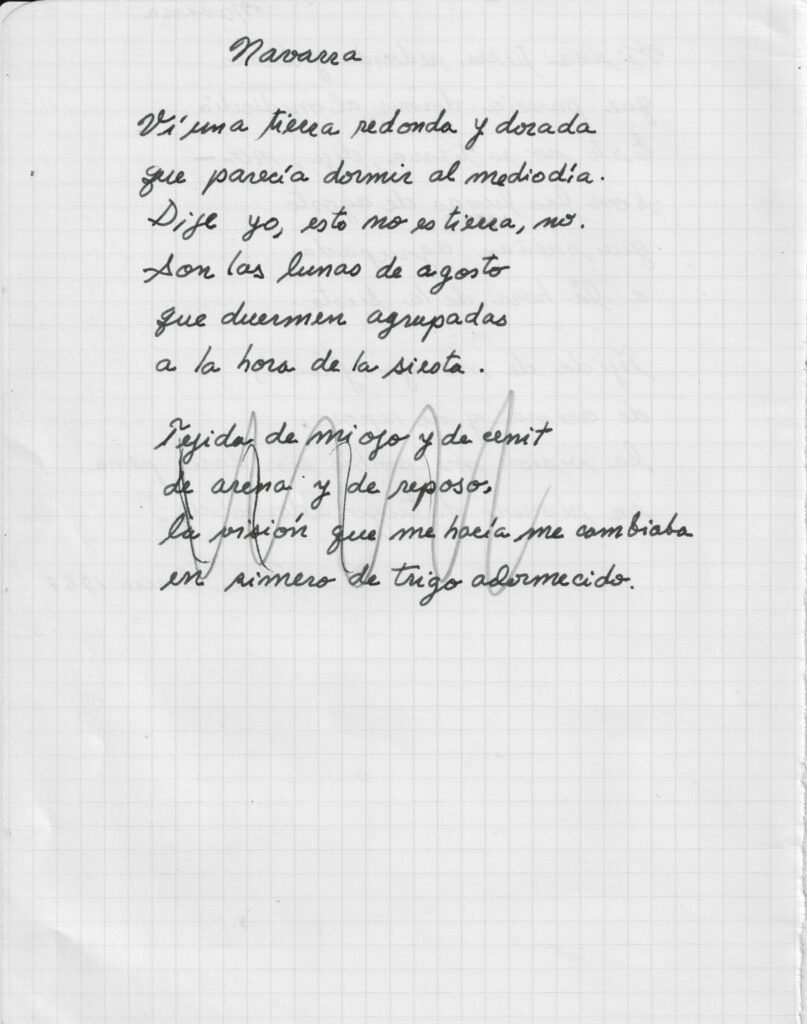 Navarra
Ví una tierra redonda y dorada
que parecía dormir al mediodía.
Dije yo, esto no es tierra, no.
Son las lunas de agosto
que duermen agrupadas
a la hora de la siesta.
Tejida de mi ojo y de cenit
de arena y de reposo,
la visión que me hacía me cambiaba
en rimero de trigo adormecido.